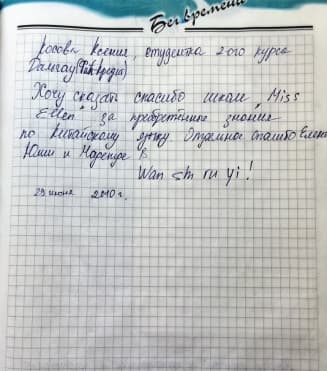 Бег времени
Косова Ксения, студентка 2-ого курса
Дальгау
Хочу сказать спасибо школе Miss
Ellen за преобретённые знания
по Китайскому языку Отдельное спасибо Елене
Юши и Маргарите В
Wan shi ru yi!
29 июня 2010 г.